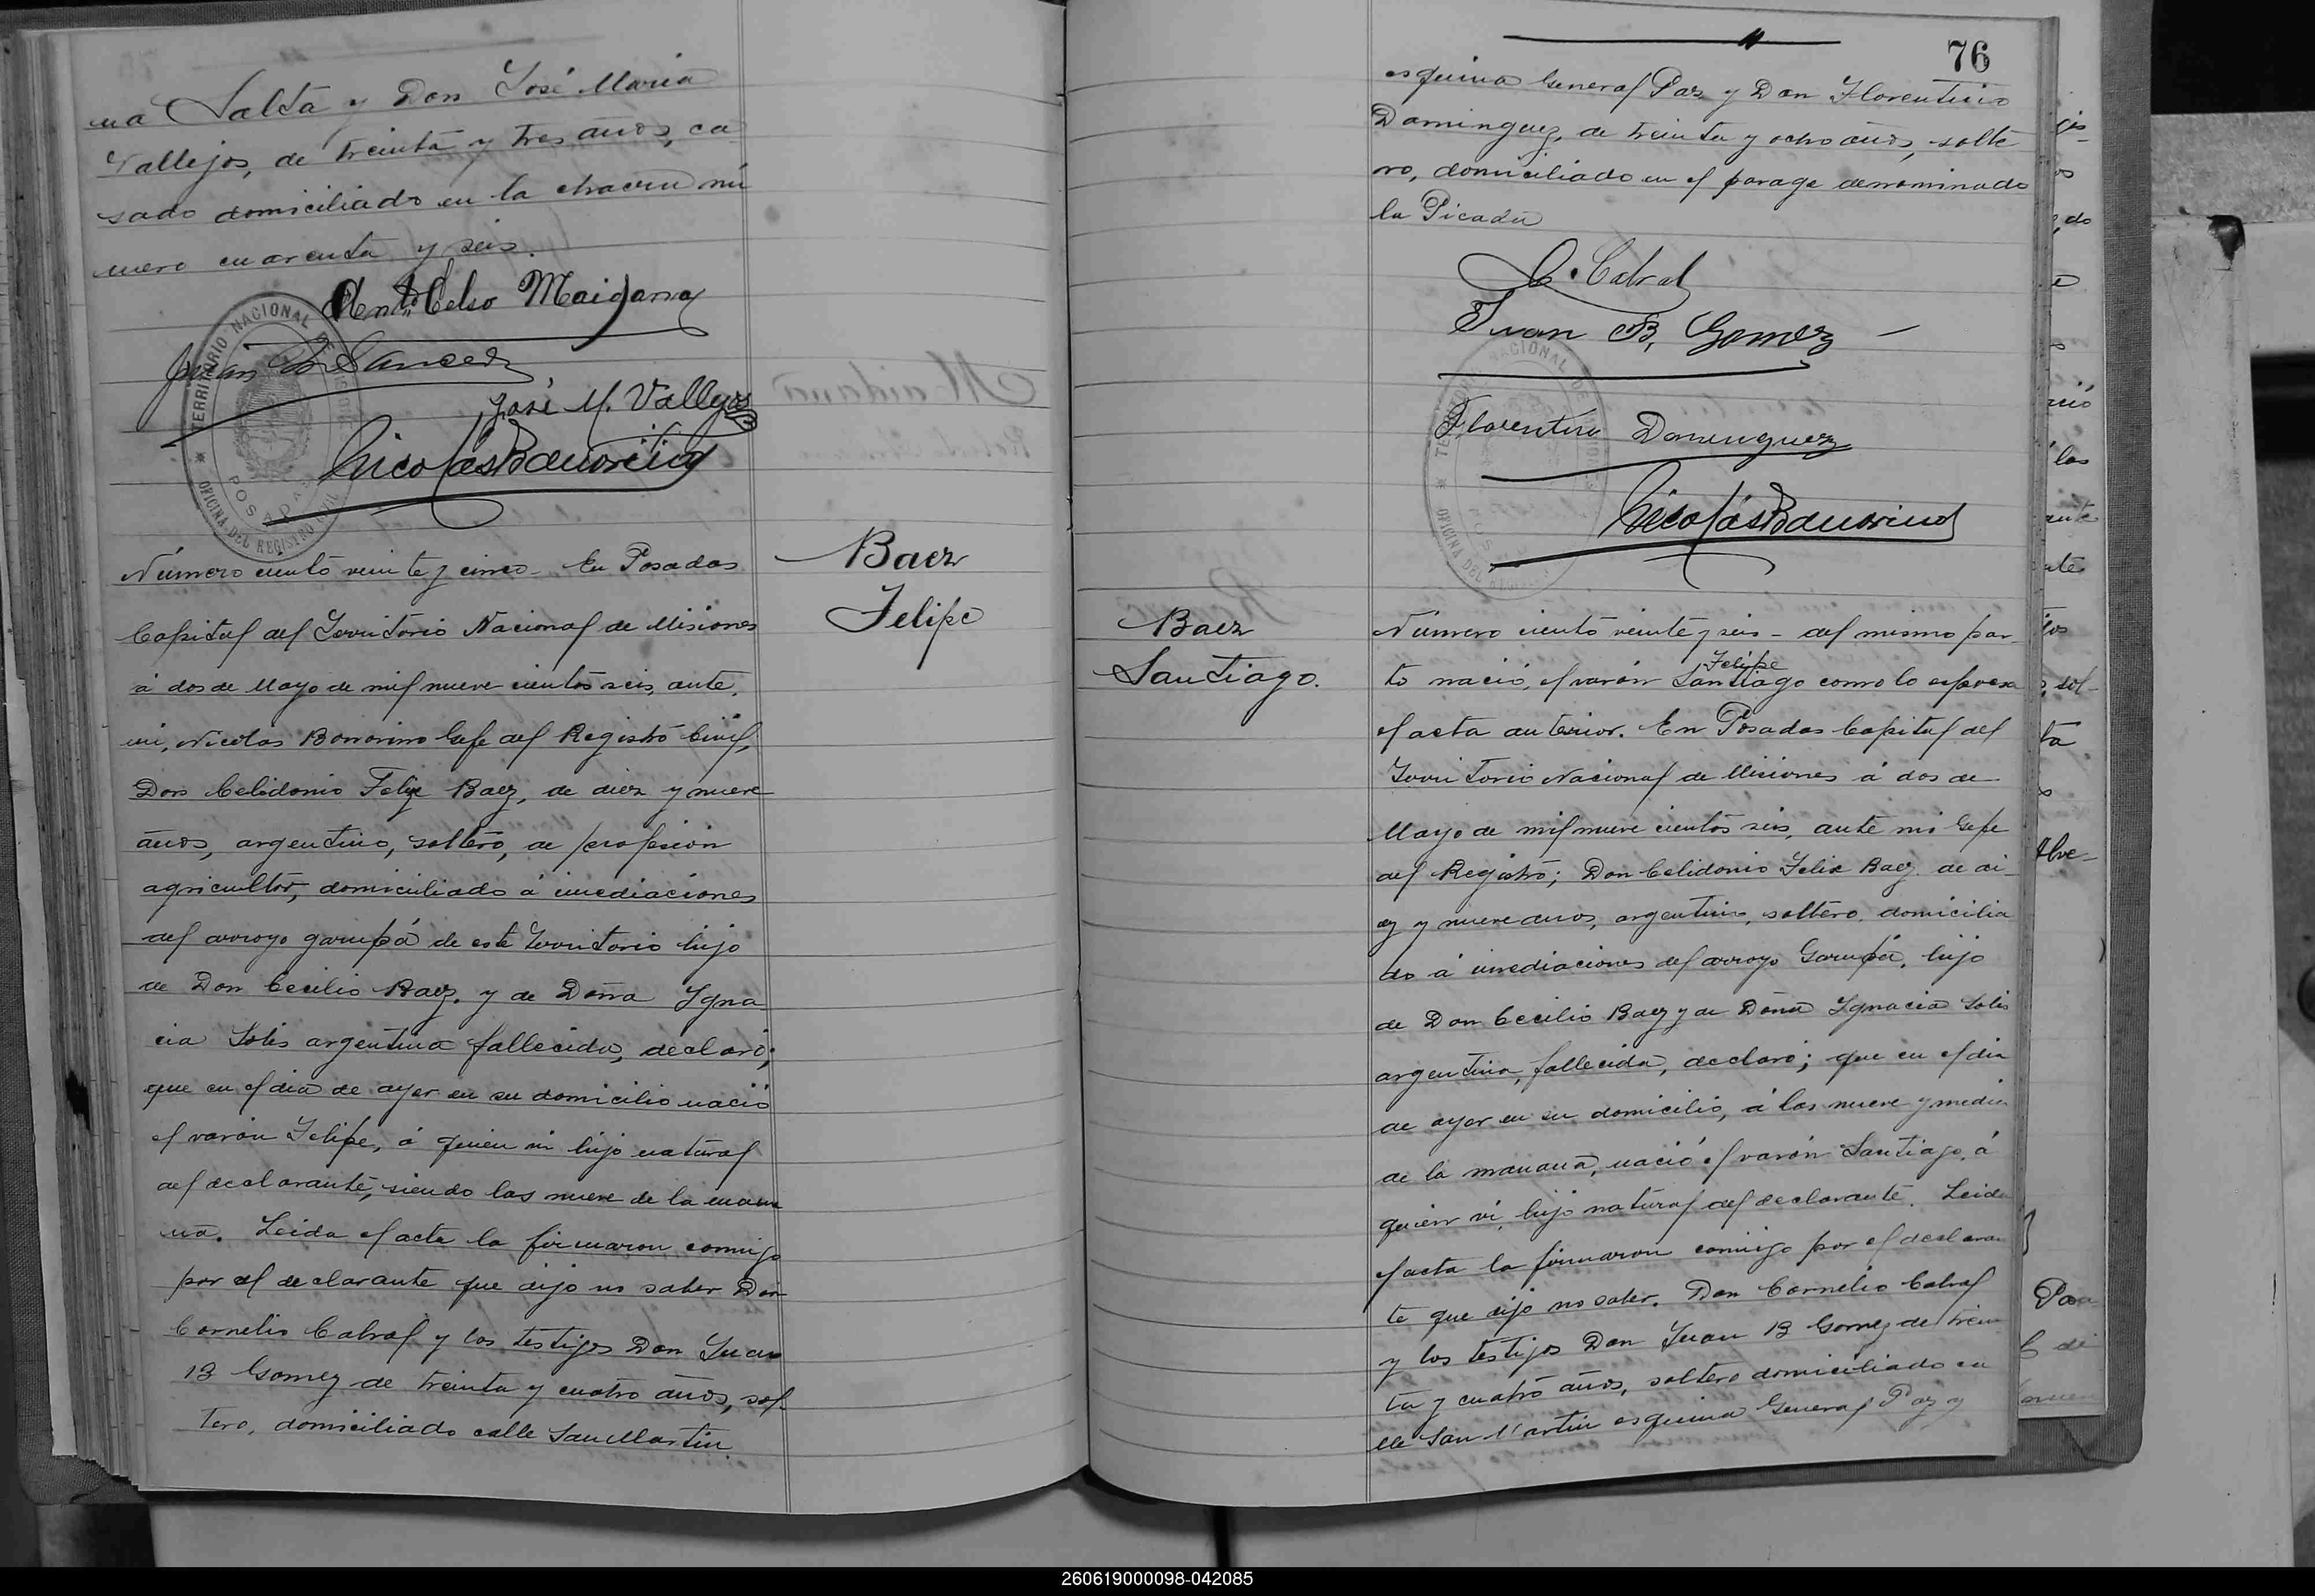 na Salta y Don José Maria
Vallejos, de treinta y tres años, ca
sado domiciliado en la chacra nú
mero cuarenta y seis.
Antº Celso Maidana
José M. Vallejos
Nicolás Bonorino
TERRITORIO NACIONAL DE MISIONES
POSADAS
OFICINA DEL REGISTRO CIVIL
Número ciento veinte y cinco - En Posadas
Capital del Territorio Nacional de Misiones
á dos de Mayo de mil nueve cientos seis, ante
mi, Nicolas Bonorino Gefe del Registro Civil,
Don Celidonio Felix Baez, de diez y nueve
años, argentino, soltero, de profesion
agricultor, domiciliado á imediaciones
del arroyo garupá de este Territorio hijo
de Don Cecilio Baez, y de Doña Igna
cia Solis argentina fallecida, declaró;
que en el dia de ayer en su domicilio nació
el varón Felipe, á quien vi hijo natural
del declarante, siendo las nueve de la maña
na. Leida el acta la firmaron conmigo
por el declarante que dijo no saber Don
Cornelio Cabral y los testigos Don Juan
B Gomez de treinta y cuatro años, sol-
tero, domiciliado calle San Martin
Baez
Felipe
76
esquina General Paz y Don Florentino
Dominguez, de treinta y ocho años, solte
ro, domiciliado en el parage denominado
la Picada
C. Cabral
Juan B. Gomez
Florentino Dominguez
Nicolás Bonorino
Baez
Santiago.
Número ciento veinte y seis - del mismo par
Felipe
to nació, el varón Santiago como lo espresa
el acta anterior. En Posadas Capital del
Territorio Nacional de Misiones á dos de
Mayo de mil nueve cientos seis, ante mi Gefe
del Registro; Don Celidonio Felix Baez de di
ez y nueve años, argentino, soltero, domicilia
do á imediaciones del arroyo Garupá, hijo
de Don Cecilio Baez y de Doña Ignacia Solis
argentina, fallecida, declaró; que en el dia
de ayer en su domicilio, á las nueve y media
de la mañana, nació el varón Santiago, á
quien vi, hijo natural del declarante. Leida
el acta la firmaron conmigo por el declaran
te que dijo no saber. Don Cornelio Cabral
y los testigos Don Juan B Gomez de trein
ta y cuatro años, soltero domiciliado ca
lle San Martin esquina General Paz y
260619000098-042085